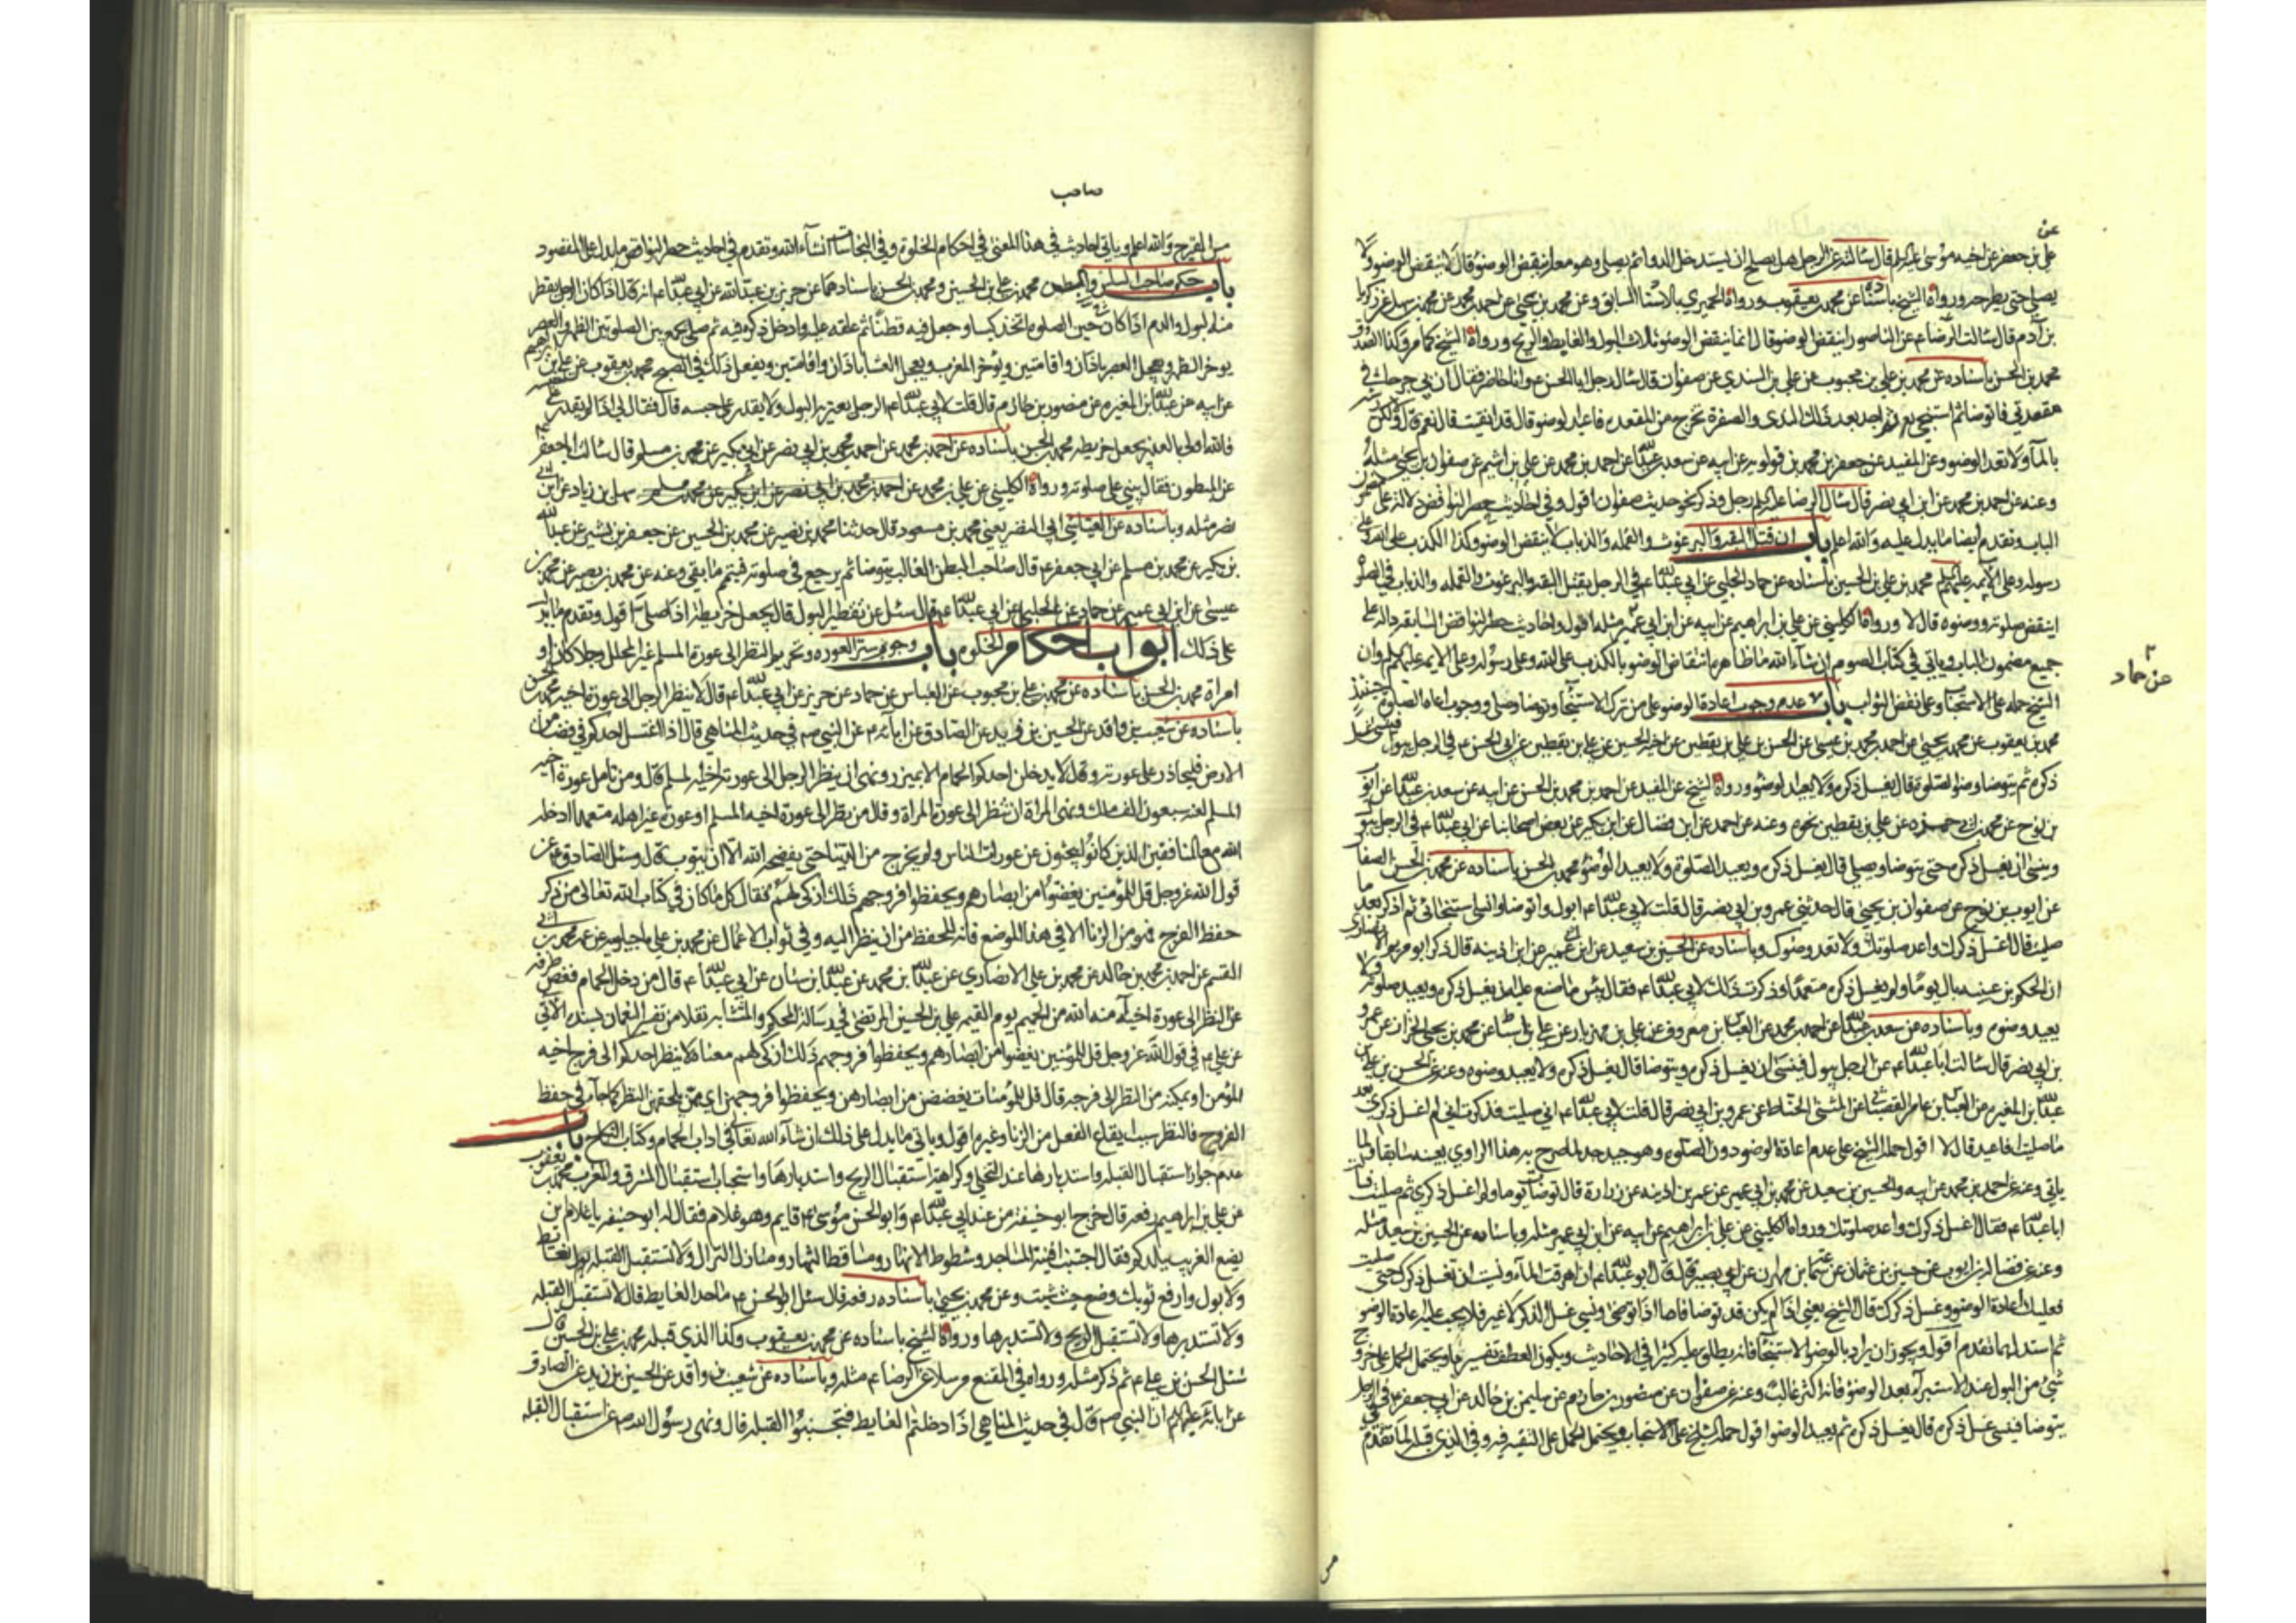 عن
علي بن جعفر عن اخيه موسى عليه السلام قال سالته عن الرجل هل يصلح ان يستدخل الدواء ثم يصلي وهو معه اينقض الوضوء قال لا ينقض الوضوء ولا
يصلي حتى يطرحه ورواه الشيخ باسناده عن محمد بن يعقوب ورواه الحميري بالاسناد السابق وعن محمد بن يحيى عن احمد بن محمد عن محمد بن سهل عن زكريا
بن آدم قال سالت الرضا ع عن الناصور اينقض الوضوء قال انما ينقض الوضوء ثلاث البول والغايط والريح ورواه الشيخ كما مر وكذا الصدوق
محمد بن الحسن باسناده عن محمد بن علي بن محبوب عن علي بن السندي عن صفوان قال سال رجل ابا الحسن ع وانا حاضر فقال ان بي جرحا في
مقعدتي فاتوضا ثم استنجي ثم اجد بعد ذلك الندى والصفرة تخرج من المقعدة فاعيد الوضوء قال قد انقيت قال نعم قال لا ولكن رشه
بالماء ولا تعد الوضوء وعن المفيد عن جعفر بن محمد بن قولويه عن ابيه عن سعد بن عبدالله عن احمد بن محمد عن علي بن اشيم عن صفوان بن يحيى مثله
وعنه عن احمد بن محمد عن ابن ابي نصر قال سال الرضا عليه السلام رجل وذكر نحو حديث صفوان اقول وفي احاديث حصر النواقض دلالة على
الباب وتقدم ايضا ما يدل عليه والله اعلم باب ان قتل البقة والبرغوث والقملة والذباب لا ينقض الوضوء وكذا الكذب على الله وعلى
رسوله وعلى الائمة عليهم السلام محمد بن علي بن الحسين باسناده عن حماد الحلبي عن ابي عبدالله ع في الرجل يقتل البقة والبرغوث والقملة والذباب في الصلوة
اينقض صلوته ووضوءه قال لا ورواه الكليني عن علي بن ابراهيم عن ابيه عن ابن ابي عمير مثله اقول واحاديث حصر النواقض السابقة دالة على
عن حماد
جميع مضمون الباب وياتي في كتاب الصوم ان شاء الله ما ظاهره انتقاض الوضوء بالكذب على الله وعلى رسوله وعلى الائمة عليهم السلام وان
الشيخ حمله على الاستحباب وعلى نقض الثواب باب عدم وجوب اعادة الوضوء على من ترك الاستنجاء وتوضا وصلى ووجوب اعادة الصلوة حينئذ
محمد بن يعقوب عن محمد بن يحيى عن احمد بن محمد بن عيسى عن الحسن بن علي بن يقطين عن اخيه الحسين عن علي بن يقطين عن ابي الحسن ع في الرجل يبول فينسى غسل
ذكره ثم يتوضا وضوء الصلوة قال يغسل ذكره ولا يعيد الوضوء ورواه الشيخ عن المفيد عن احمد بن محمد بن الحسن عن ابيه عن سعد بن عبدالله عن ايوب
بن نوح عن محمد بن ابي حمزة عن علي بن يقطين نحوه وعنه عن احمد عن ابن فضال عن ابن بكير عن بعض اصحابنا عن ابي عبدالله ع في الرجل يبول
وينسى ان يغسل ذكره حتى يتوضا ويصلي قال يغسل ذكره ويعيد الصلوة ولا يعيد الوضوء محمد بن الحسن باسناده عن محمد بن الحسن الصفار
عن ايوب بن نوح عن صفوان بن يحيى قال حدثني عمرو بن ابي نصر قال قلت لابي عبدالله ع ابول واتوضا وانسى استنجائي ثم اذكر بعد ما
صليت قال اغسل ذكرك واعد صلوتك ولا تعد وضوءك وباسناده عن الحسين بن سعيد عن ابن ابي عمير عن ابن اذينه قال ذكر ابو مريم الانصاري
ان الحكم بن عيينه بال يوما ولم يغسل ذكره متعمدا فذكرت ذلك لابي عبدالله ع فقال بئس ما صنع عليه ان يغسل ذكره ويعيد صلوته ولا
يعيد وضوءه وباسناده عن سعد بن عبدالله عن احمد بن محمد عن العباس بن معروف عن علي بن مهزيار عن علي بن اسباط عن محمد بن يحيى الخزاز عن عمرو
بن ابي نصر قال سالت ابا عبدالله ع عن الرجل يبول فينسى ان يغسل ذكره ويتوضا قال يغسل ذكره ولا يعيد وضوءه وعنه عن الحسن بن علي بن
عبدالله بن المغيره عن العباس بن عامر القصباني عن المثنى الحناط عن عمرو بن ابي نصر قال قلت لابي عبدالله ع اني صليت فذكرت اني لم اغسل ذكري بعد
ما صليت افاعيد قال لا اقول حمله الشيخ على عدم اعادة الوضوء دون الصلوة وهو جيد جدا لما صرح به هذا الراوي بعينه سابقا ولما
ياتي وعنه عن احمد بن محمد عن ابيه والحسين بن سعيد عن محمد بن ابي عمير عن عمر بن اذينه عن زرارة قال توضات يوما ولم اغسل ذكري ثم صليت فسالت
ابا عبدالله ع فقال اغسل ذكرك واعد صلوتك ورواه الكليني عن علي بن ابراهيم عن ابيه عن ابن ابي عمير مثله وباسناده عن الحسين بن سعيد مثله
وعنه عن فضالة بن ايوب عن حسين بن عثمان عن سماعة بن مهران عن ابي بصير قال قال ابو عبدالله ع ان اهرقت الماء ونسيت ان تغسل ذكرك حتى صليت
فعليك اعادة الوضوء وغسل ذكرك قال الشيخ يعني اذا لم يكن قد توضا فاما اذا توضا ونسي غسل الذكر لا غير فلا يجب عليه اعادة الوضوء
ثم استدل بما تقدم اقول ويجوز ان يراد بالوضوء الاستنجاء فانه يطلق عليه كثيرا في الاحاديث ويكون العطف تفسيريا ويحتمل الحمل على خروج
شيء من البول عند الاستبراء بعد الوضوء فانه اكثر غالب وعنه عن صفوان عن منصور بن حازم عن سليمن بن خالد عن ابي جعفر ع في الرجل
يتوضا فينسى غسل ذكره قال يغسل ذكره ثم يعيد الوضوء اقول حمله الشيخ على الاستحباب ويحتمل الحمل على التقية فيه وفي الذي قبله لما تقدم
صاحب
من الفرج والله اعلم وياتي احاديث في هذا المعنى في احكام الخلوة وفي النجاسات انشاء الله وتقدم في احاديث حصر النواقض ما يدل على المقصود
باب حكم صاحب السلس والمبطون محمد بن علي بن الحسين ومحمد بن الحسن باسنادهما عن حريز بن عبدالله عن ابي عبدالله ع انه قال اذا كان الرجل يقطر
منه البول والدم اذا كان حين الصلوة اتخذ كيسا وجعل فيه قطنا ثم علقه عليه وادخل ذكره فيه ثم صلى يجمع بين الصلوتين الظهر والعصر
يوخر الظهر ويعجل العصر باذان واقامتين ويؤخر المغرب ويعجل العشاء باذان واقامتين ويفعل ذلك في الصبح محمد بن يعقوب عن علي بن ابراهيم
عن ابيه عن عبدالله بن المغيره عن منصور بن حازم قال قلت لابي عبدالله ع الرجل يعتريه البول ولا يقدر على حبسه قال فقال لي اذا لم يقدر على حبسه
فالله اولى بالعذر يجعل خريطه محمد بن الحسن باسناده عن احمد بن محمد عن احمد بن محمد بن ابي نصر عن ابن بكير عن محمد بن مسلم قال سالت ابا جعفر ع
عن المبطون فقال يبني على صلوته ورواه الكليني عن علي بن محمد عن سهل بن زياد عن ابن ابي
نصر مثله وباسناده عن العياشي ابي النضر يعني محمد بن مسعود قال حدثنا محمد بن نصير عن محمد بن الحسين عن جعفر بن بشير عن عبدالله
بن بكير عن محمد بن مسلم عن ابي جعفر ع قال صاحب البطن الغالب يتوضا ثم يرجع في صلوته فيتم ما بقي وعنه عن محمد بن نصير عن محمد بن
عيسى عن ابن ابي عمير عن حماد عن الحلبي عن ابي عبدالله ع قال سئل عن تقطير البول قال يجعل خريطة اذا صلى اقول وتقدم ما يدل
على ذلك ابواب احكام الخلوه باب وجوب ستر العوره وتحريم النظر الى عورة المسلم غير المحلل رجلا كان او
امراة محمد بن الحسن باسناده عن محمد بن علي بن محبوب عن العباس عن حماد عن حريز عن ابي عبدالله ع قال لا ينظر الرجل الى عورة اخيه محمد بن الحسين
باسناده عن شعيب بن واقد عن الحسين بن زيد عن الصادق عن آبائه ع عن النبي ص في حديث المناهي قال اذا اغتسل احدكم في فضاء من
الارض فليحاذر على عورته وقال لا يدخلن احدكم الحمام الا بميزر ونهى ان ينظر الرجل الى عورة اخيه المسلم وقال ومن تامل عورة اخيه
المسلم لعنه سبعون الف ملك ونهى المراة ان تنظر الى عورة المراة وقال من نظر الى عورة اخيه المسلم او عورة غير اهله متعمدا ادخله
الله مع المنافقين الذين كانوا يبحثون عن عورات الناس ولم يخرج من الدنيا حتى يفضحه الله الا ان يتوب قال وسئل الصادق ع عن
قول الله عز وجل قل للمؤمنين يغضوا من ابصارهم ويحفظوا فروجهم ذلك ازكى لهم فقال كل ما كان في كتاب الله تعالى من ذكر
حفظ الفرج فهو من الزنا الا في هذا الموضع فانه للحفظ من ان ينظر اليه وفي ثواب الاعمال عن محمد بن علي ماجيلويه عن عمه محمد بن ابي
القسم عن احمد بن محمد بن خالد عن محمد بن علي الانصاري عن عبدالله بن محمد عن عبدالله بن سنان عن ابي عبدالله ع قال من دخل الحمام فغض طرفه
عن النظر الى عورة اخيه آمنه الله من الحميم يوم القيمه علي بن الحسين المرتضى في رسالة المحكم والمتشابه نقلا من تفسير النعمان بسنده الآتي
عن علي ع في قول الله عز وجل قل للمؤمنين يغضوا من ابصارهم ويحفظوا فروجهم ذلك ازكى لهم معناه لا ينظر احدكم الى فرج اخيه
المؤمن او يمكنه من النظر الى فرجه قال قل للمؤمنات يغضضن من ابصارهن ويحفظوا فروجهن اي ممن يلحقهن النظر كما جاء في حفظ
الفروج فالنظر سبب ايقاع الفعل من الزنا وغيره اقول وياتي ما يدل على ذلك ان شاء الله تعالى في اداب الحمام وكتاب النكاح باب
عدم جواز استقبال القبله واستدبارها عند التخلي وكراهة استقبال الريح واستدبارها واستحباب استقبال المشرق والمغرب محمد بن يعقوب
عن علي بن ابراهيم رفعه قال خرج ابو حنيفه من عند ابي عبدالله ع وابو الحسن موسى ع قايم وهو غلام فقال له ابو حنيفه يا غلام اين
يضع الغريب ببلدكم فقال اجتنب افنية المساجد وشطوط الانهار ومساقط الثمار ومنازل النزال ولا تستقبل القبله بغايط
ولا بول وارفع ثوبك وضع حيث شئت وعن محمد بن يحيى باسناده رفعه قال سئل ابو الحسن ع ما حد الغايط قال لا تستقبل القبله
ولا تستدبرها ولا تستقبل الريح ولا تستدبرها ورواه الشيخ باسناده عن محمد بن يعقوب وكذا الذي قبله محمد بن علي بن الحسين قال
سئل الحسن بن علي ع ثم ذكر مثله ورواه في المقنع مرسلا عن الرضا ع مثله وباسناده عن شعيب بن واقد عن الحسين بن زيد عن الصادق
عن آبائه عليهم السلام ان النبي ص قال في حديث المناهي اذا دخلتم الغايط فتجنبوا القبله قال ونهى رسول الله ص عن استقبال القبله